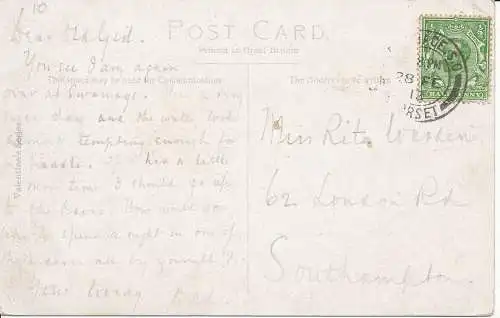 10
POST CARD.
Printed in Great Britain
This space may be used for Communications
The Address to be written
Valentine's Series
HALFPENNY
28 FE
12
DORSET
Dear Old Girl.
You see I am again
over at Swanage. It is a very
day and the water looks
almost tempting enough to
paddle. If I had a little
more time I should go up
to the Caves. How would you
like to spend a night in one of
all by yourself?
Dad.
Miss Rita
62 London Rd
Southampton.